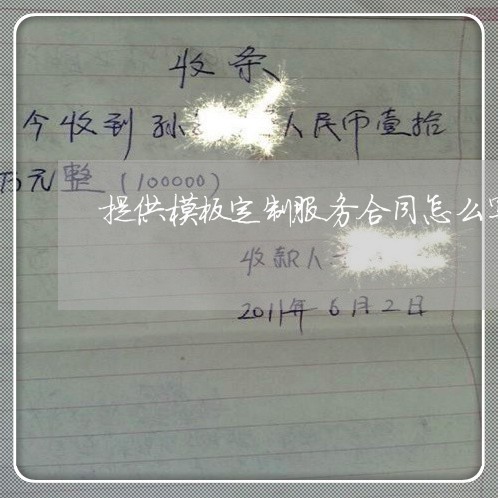 收条
今收到孙 人民币壹拾
万元整(100000)
提供模板定制服务合同怎么写
收款人
2011年6月2日